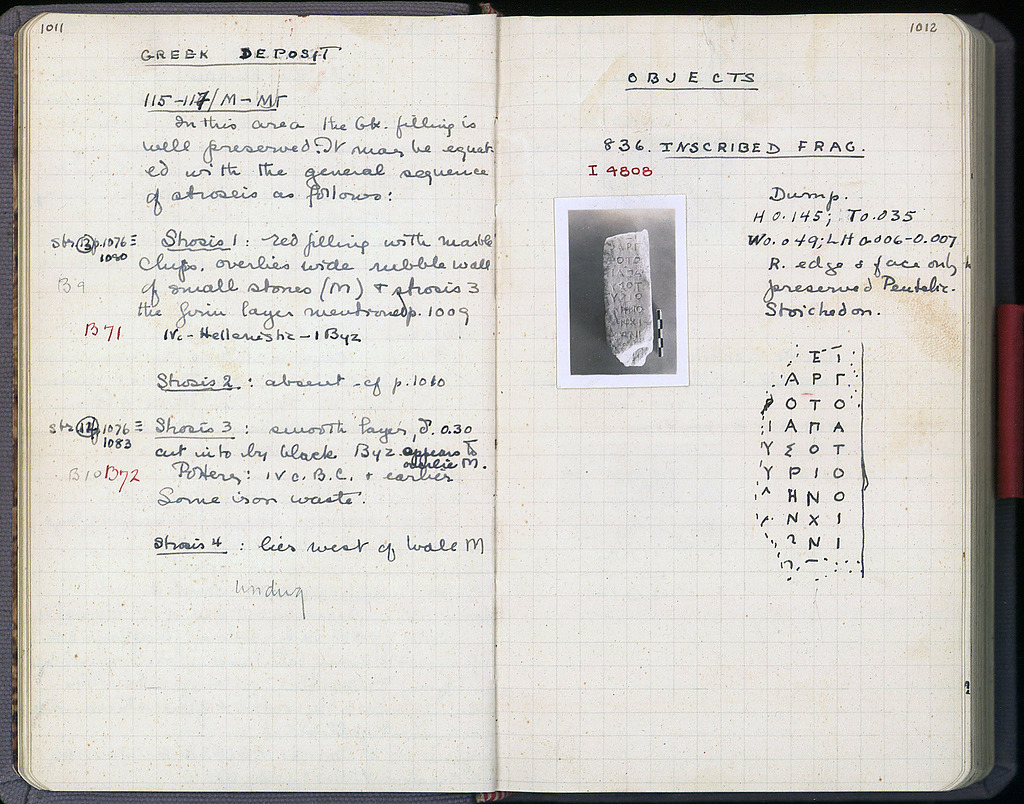 1011
GREEK DEPOSIT
115-117/M-MΓ
In this area the Gk. filling is
well preserved. It may be equat
ed with the general sequence
of stroseis as follows:
Str 13 p. 1076 =
1080
Strosis 1: red filling with marble
chips. overlies wide rubble wall
B9
of small stones (M) + strosis 3
the firm layer mentioned p. 1009
B71
IVc - Hellenistic - 1 Byz
Strosis 2: absent - cf p. 1010
Str 14 1076 =
1083
Strosis 3: smooth layer, d. 0.30
cut into by black Byz appears to
overlie M.
B10 B72
Pottery: IV c. B.C. + earlier
Some iron waste.
Strosis 4: lies west of Wall M
undug
1012
OBJECTS
836. INSCRIBED FRAG.
I 4808
Dump.
H 0.145; T 0.035
W 0.049; LH 0.006-0.007
R. edge & face only
preserved Pentelic.
Stoichedon.
Ε Ι
Α Ρ Γ
Ο Τ Ο
Ι Α Π Α
Υ Σ Ο Τ
Υ Ρ Ι Ο
Η Ν Ο
Ν Χ Ι
Ν Ι